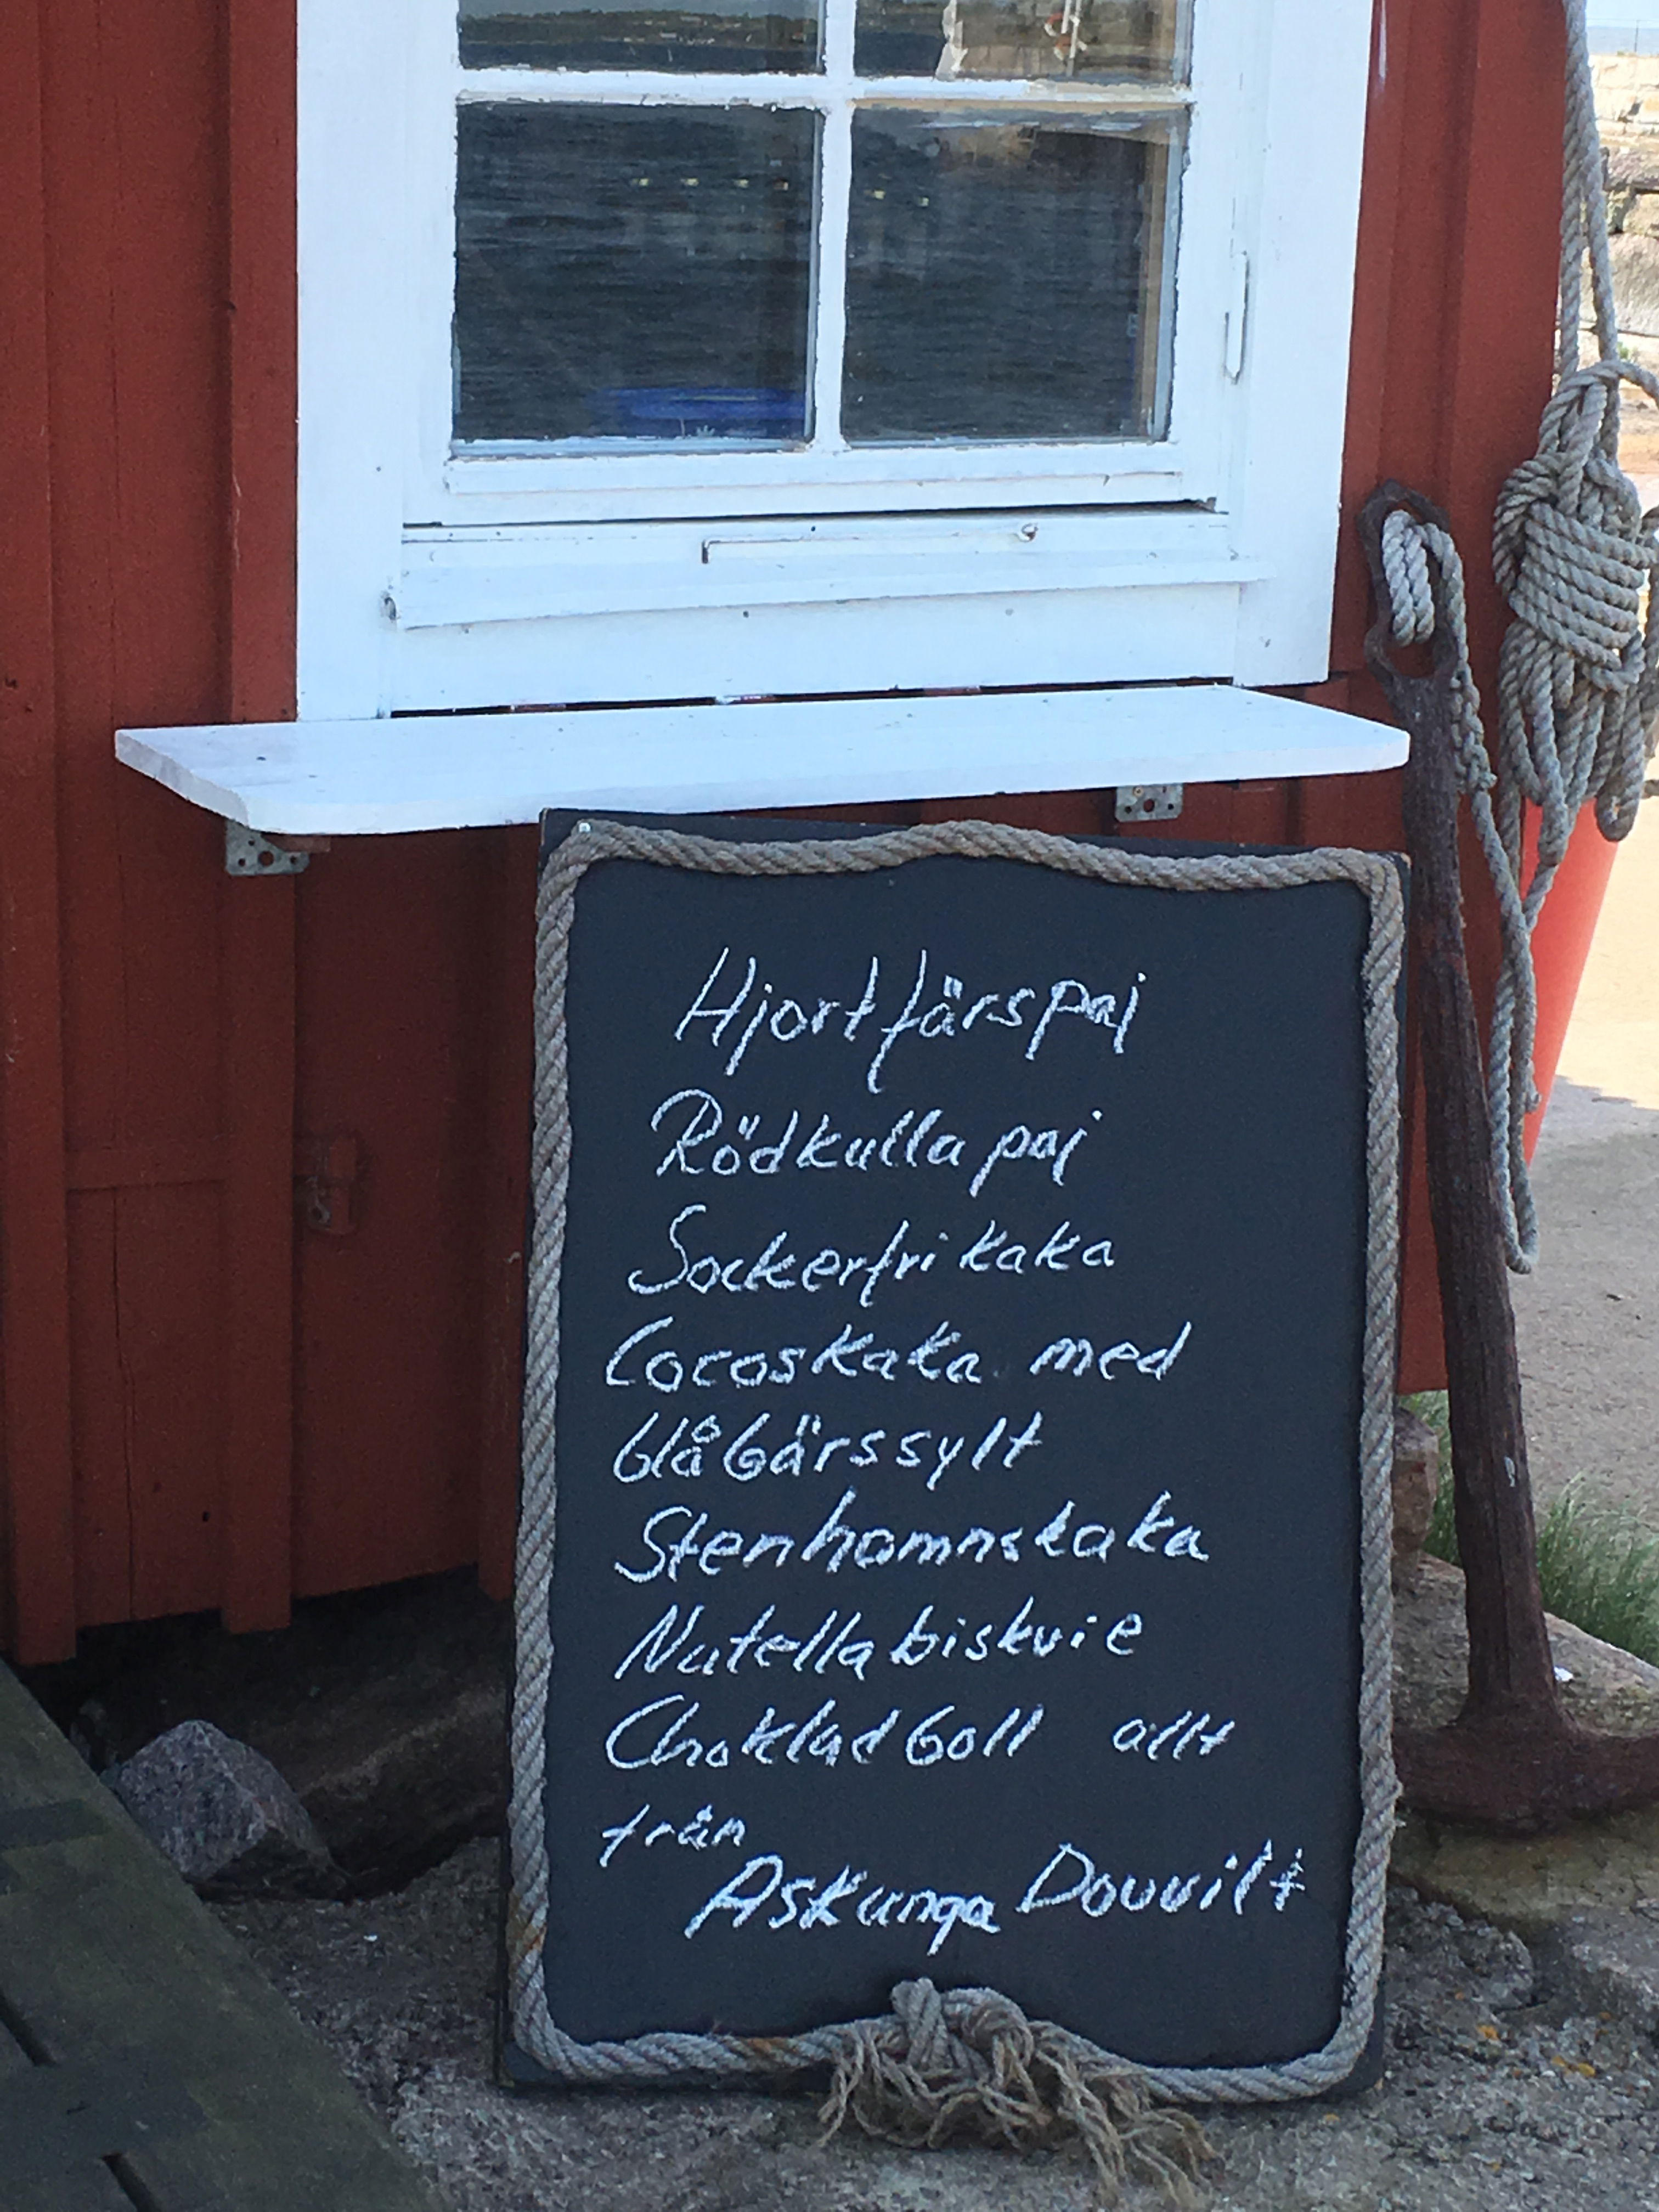 Hjortfärspaj
Rödkullapaj
Sockerfri kaka
Cocoskaka med
blåbärssylt
Stenhamnskaka
Nutellabiskvie
Chokladboll allt
från
Askunga Dovvilt